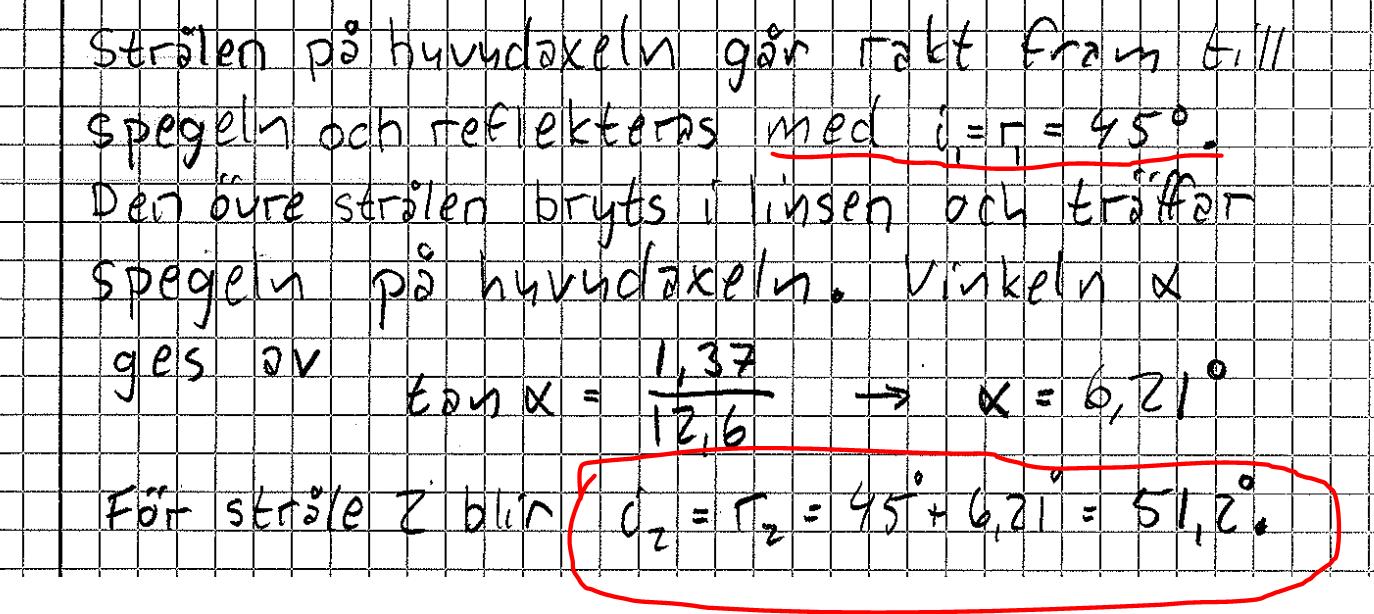 Strålen på huvudaxeln går rakt fram till
spegeln och reflekteras med i₁ = r₁ = 45°.
Den övre strålen bryts i linsen och träffar
spegeln på huvudaxeln. Vinkeln α
ges av tan α = 1,37/12,6 → α = 6,21°
För stråle 2 blir i₂ = r₂ = 45° + 6,21° = 51,2°.